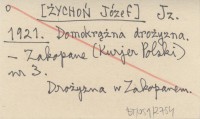 [ŻYCHOŃ Józef] Jz.
1921. Domokrążna drożyzna.
– Zakopane (Kurjer Polski)
nr 3.
Drożyzna w Zakopanem.